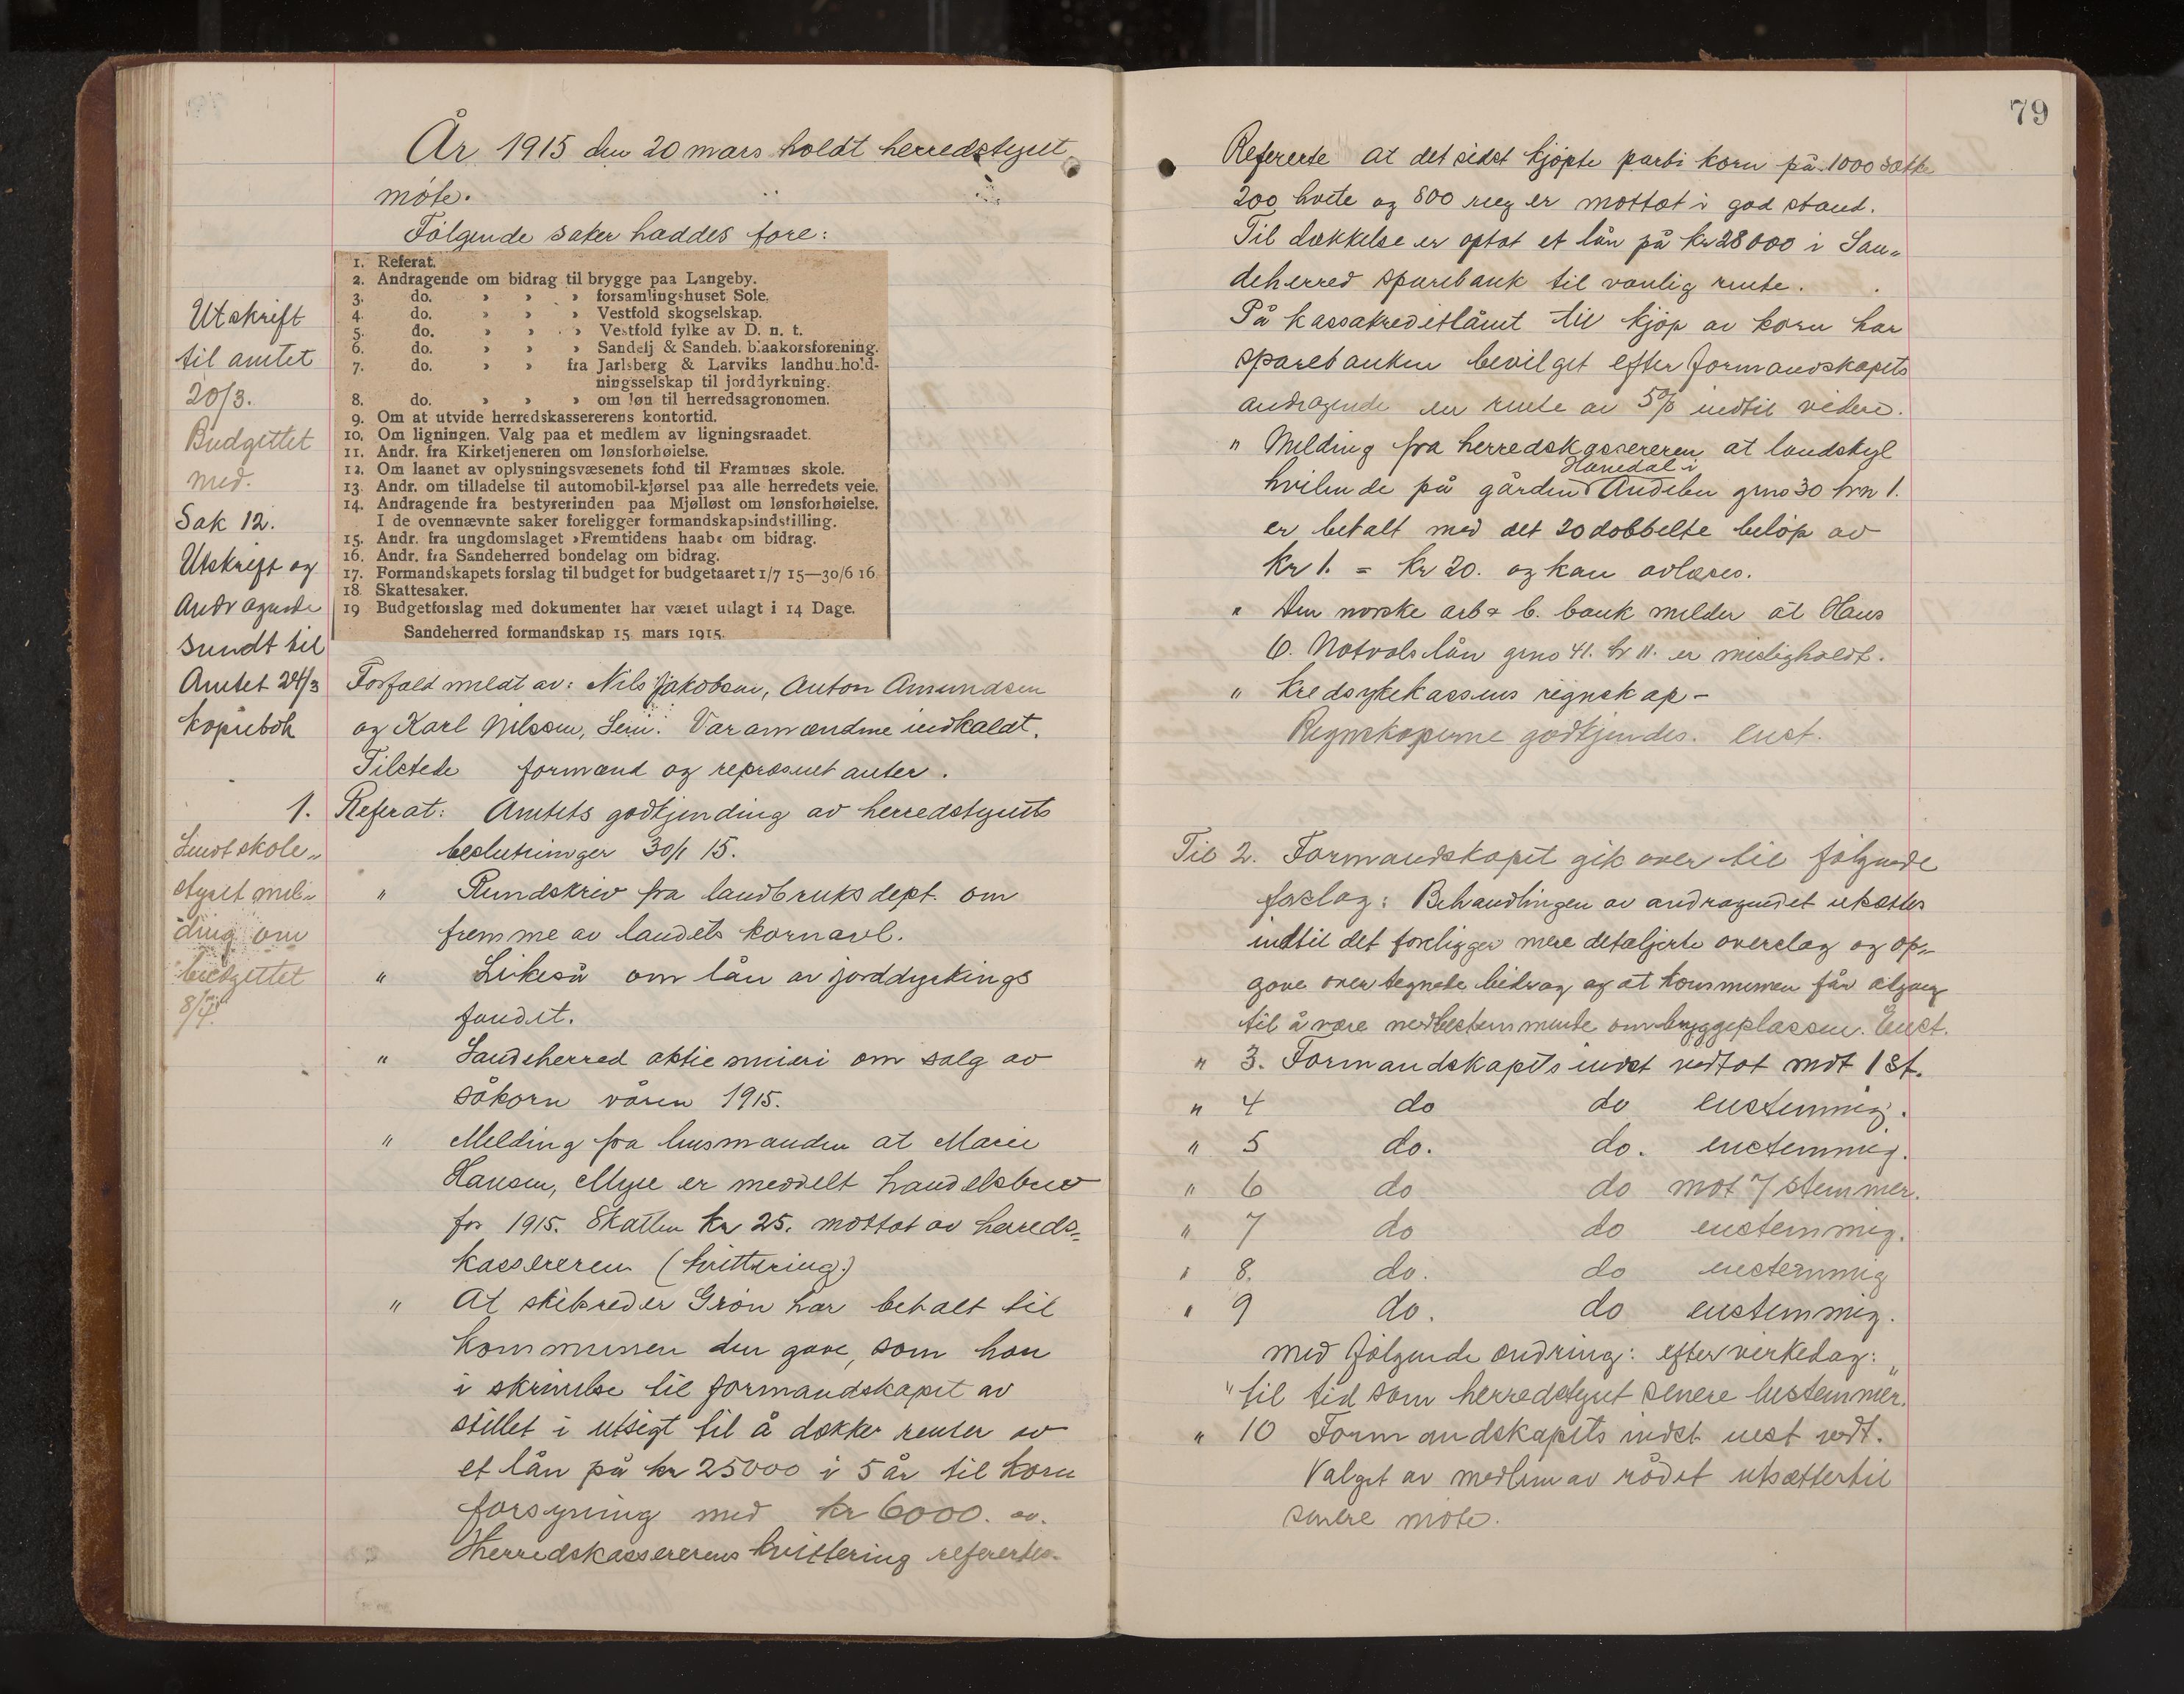 År 1915 den 20 mars holdt herredstyret
møte.
Følgende saker haddes fore:
1. Referat.
2. Andragende om bidrag til brygge paa Langeby.
3. do. » » » forsamlingshuset Sole.
4. do. » » » Vestfold skogselskap.
5. do. » » » Vestfold fylke av D. n. t.
6. do. » » » Sandefj & Sandeh. blaakorsforening.
7. do. » » fra Jarlsberg & Larviks landhushold-
ningsselskap til jorddyrkning.
8. do. » » » om løn til herredsagronomen.
9. Om at utvide herredskassererens kontortid.
10. Om ligningen. Valg paa et medlem av ligningsraadet.
11. Andr. fra Kirketjeneren om lønsforhøielse.
12. Om laanet av oplysningsvæsenets fond til Framnæs skole.
13. Andr. om tilladelse til automobil-kjørsel paa alle herredets veie.
14. Andragende fra bestyrerinden paa Mjølløst om lønsforhøielse.
I de ovennævnte saker foreligger formandskapsindstilling.
15. Andr. fra ungdomslaget »Fremtidens haab« om bidrag.
16. Andr. fra Sandeherred bondelag om bidrag.
17. Formandskapets forslag til budget for budgetaaret 1/7 15—30/6 16
18. Skattesaker.
19 Budgetforslag med dokumenter har været utlagt i 14 Dage.
Sandeherred formandskap 15 mars 1915.
Utskrift
til amtet
20/3.
Budgettet
med.
Sak 12.
Utskrift og
Andragende
sendt til
Amtet 24/3
kopiebok
Forfald meldt av: Nils Jakobsen, Anton Amundsen
og Karl Nilssen, Varamændene indkaldt.
Tilstede formænd og repræsentanter.
1. Referat: Amtets godkjending av herredstyrets
beslutninger 30/1 15.
Sendt skole-
styret mel-
ding om
budgettet
8/4.
" Rundskriv fra landbruksdept. om
fremme av landets kornavl.
" Likeså om lån av jorddyrkings
fondet.
" Sandeherred aktiemeieri om salg av
såkorn våren 1915.
" Melding fra lensmanden at Marie
Hansen, Myre er meddelt handelsbrev
for 1915. Skatten kr 25. mottat av herreds-
kassereren (kvittering)
" At skibsreder Grøn har betalt til
kommunen den gave, som han
i skrivelse til formandskapet av
stillet i utsigt til å dække renter av
et lån på kr 25000 i 5 år til korn
forsyning med kr 6000. ».
Herredskassererens kvittering refertes.
79
Refererte at det sidst kjøpte parti korn på 1000 sække
200 hvete og 800 rug er mottat i god stand.
Til dækkelse er optat et lån på kr 28000 i San-
deherred sparebank til vanlig rente.
På kassakreditlånet til kjøp av korn har
sparebanken bevilget efter formandskapets
andragende en rente av 5% indtil videre.
" Melding fra herredskassereren at landskyl
Hanedal i
hvilende på gården Andebu grno 30 brn 1.
er betalt med det 20 dobbelte beløp av
kr 1. = kr 20. og kan avlæses.
" Den norske arb & b. bank melder at Hans
O. Natvals lån grno 41. br 11. er misligholdt.
" Kredsykekassens regnskap -
Regnskaperne godkjendes. enst.
Til 2. Formandskapet gik over til følgende
forslag: Behandlingen av andragendet utsættes
indtil det foreligger mere detaljerte overslag og op-
gave over tegnede bidrag og at kommunen får adgang
til å være medbestemmende om bryggeplassen. Enst.
" 3. Formandskapets indst vedtat mot 1 st.
" 4 do do enstemmig.
" 5 do. do. enstemmig.
" 6 do do mot 7 stemmer.
" 7 do do enstemmig.
" 8. do. do enstemmig
" 9 do. do enstemmig.
med følgende ændring: efter virkedag:
"til tid som herredstyret senere bestemmer."
" 10 Formandskapets indst enst vedt.
Valget av medlem av rådet utsættes til
senere møte.